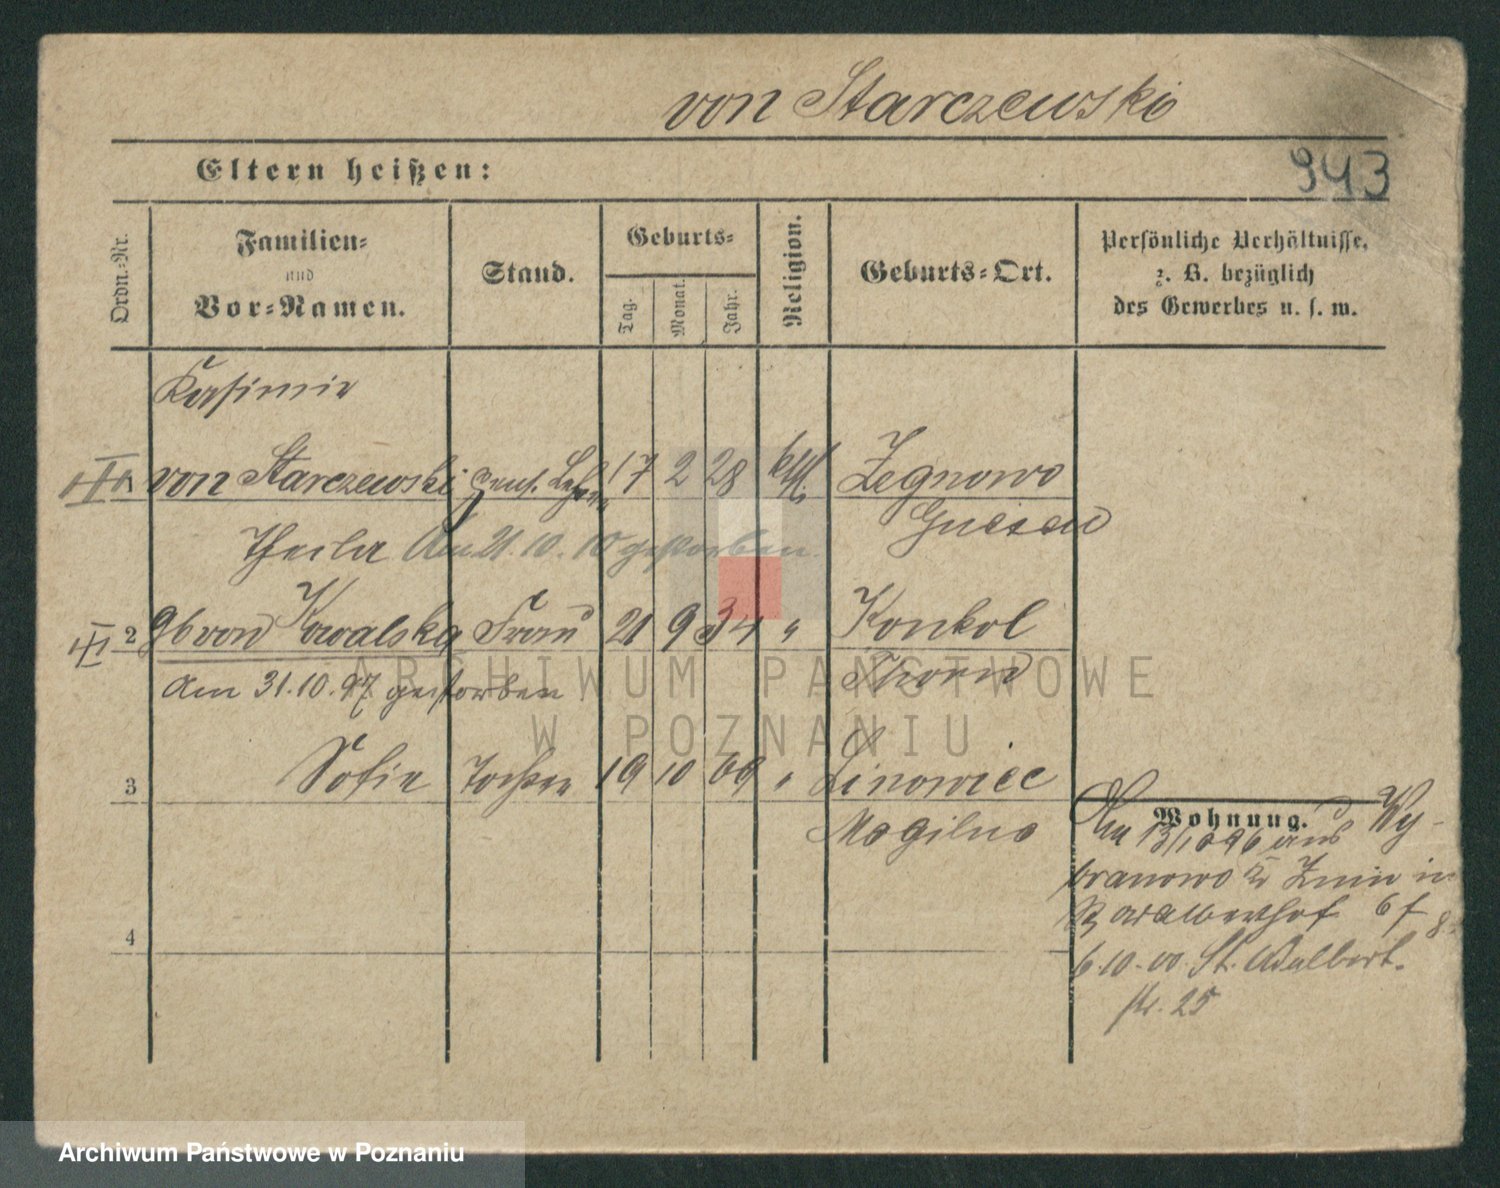 von Starczewski
Eltern heißen:
943
Ordn.=Nr.
Familien=
und
Vor=Namen.
Stand.
Geburts=
Tag.
Monat.
Jahr.
Religion.
Geburts=Ort.
Persönliche Verhältnisse,
z. B. bezüglich
des Gewerbes u. s. w.
Kasimir
1 von Starczewski pens. Lehrer 17 2 28 kth. Zegnowo
Gnesen
Am 21.10.10 gestorben.
2 geb von Kowalska Frau 21 9 34 " Konkol
Thorn
Am 31.10.97 gestorben
3 Sofie Tochter 19 10 69 " Linowiec
Mogilno
4
Wohnung.
Am 13/10 96 aus Wy-
branowo Kr Znin in
6.10.00. St. Adalbert-
str. 25
ARCHIWUM PAŃSTWOWE
W POZNANIU
Archiwum Państwowe w Poznaniu